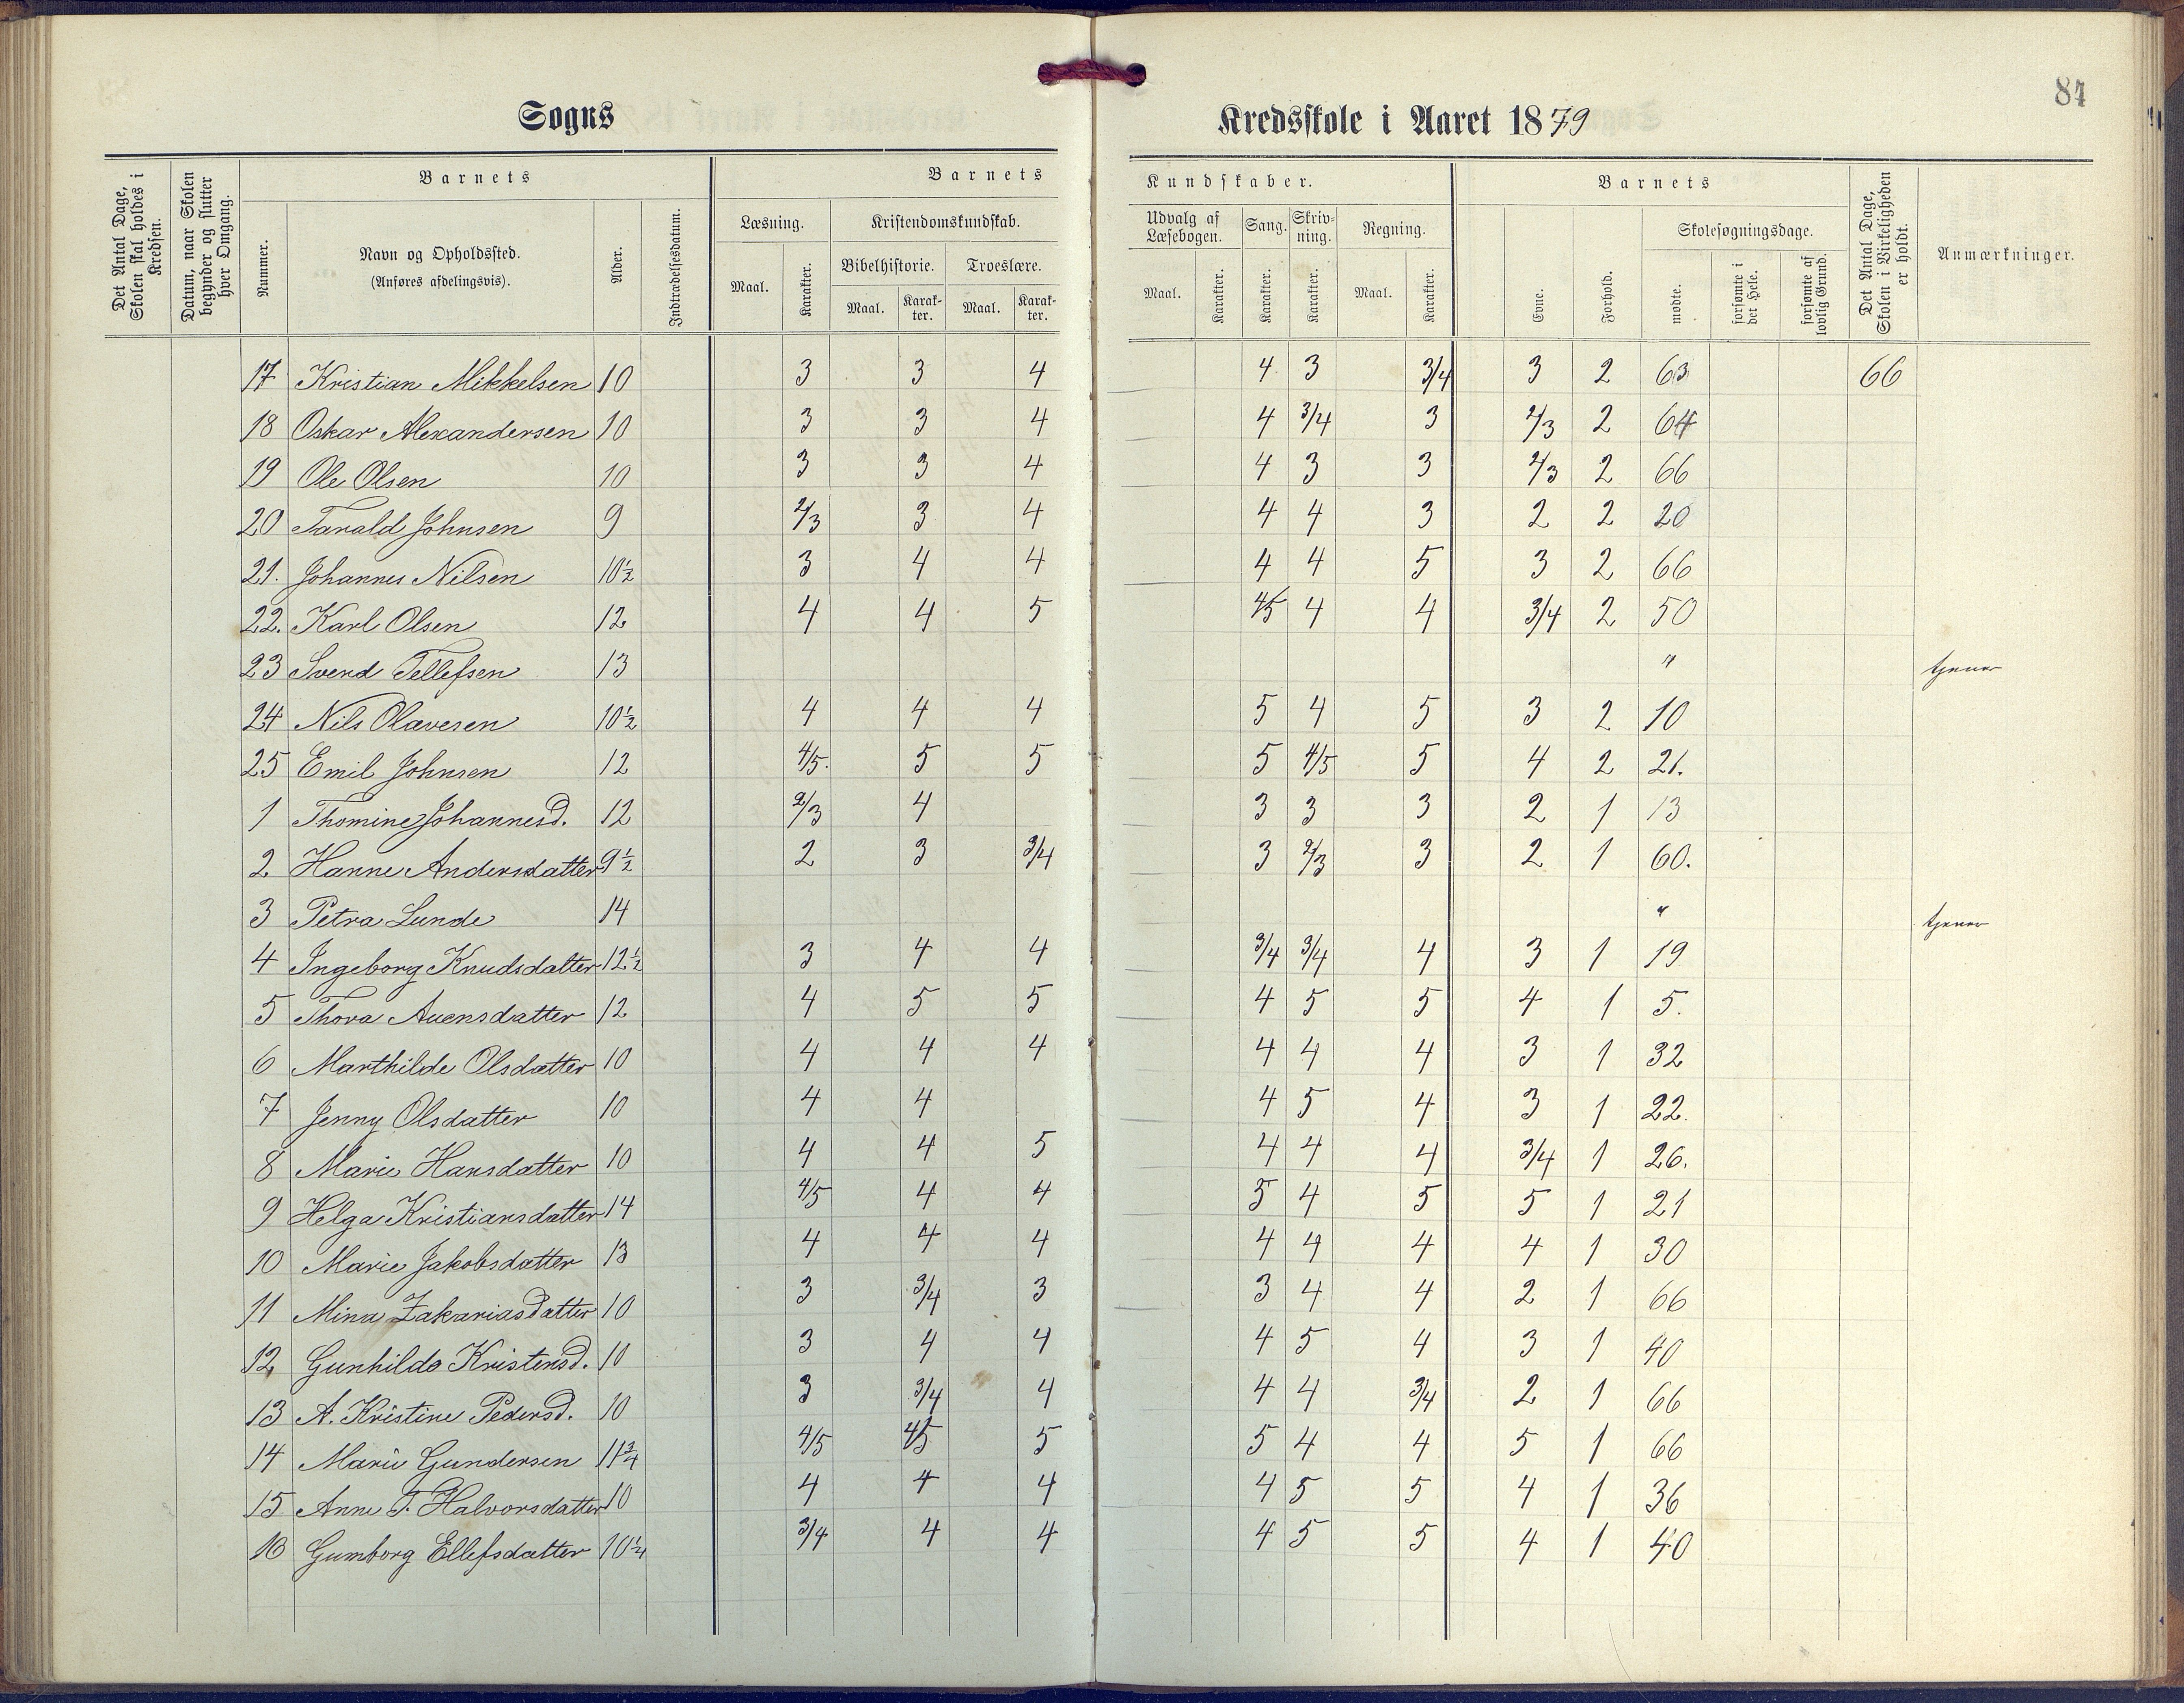 84
Sogns Kredsskole i Aaret 1879
Det Antal Dage, Skolen skal holdes i Kredsen.
Datum, naar Skolen begynder og slutter hver Omgang.
Barnets
Nummer.
Navn og Opholdssted.
(Anføres afdelingsvis).
Alder.
Indtrædelsesdatum.
Barnets Kundskaber.
Læsning.
Maal. Karakter.
Kristendomskundskab.
Bibelhistorie. Troeslære.
Maal. Karakter. Maal. Karakter.
Udvalg af Læsebogen.
Maal. Karakter.
Sang.
Karakter.
Skrivning.
Karakter.
Regning.
Maal. Karakter.
Barnets
Evne. Forhold.
Skolesøgningsdage.
mødte. forsømte i det Hele. forsømte af lovlig Grund.
Det Antal Dage, Skolen i Virkeligheden er holdt.
Anmærkninger.
17 Kristian Mikkelsen 10 3 3 4 4 3 3/4 3 2 63 66
18 Oskar Alexandersen 10 3 3 4 4 3/4 3 2/3 2 64
19 Ole Olsen 10 3 3 4 4 3 3 2/3 2 66
20 Tarald Johnsen 9 2/3 3 4 4 4 3 2 2 20
21. Johannes Nilsen 10½ 3 4 4 4 4 5 3 2 66
22. Karl Olsen 12 4 4 5 4/5 4 4 3/4 2 50
23 Svend Tellefsen 13 " tjener
24 Nils Olavesen 10½ 4 4 4 5 4 5 3 2 10
25 Emil Johnsen 12 4/5. 5 5 5 4/5 5 4 2 21.
1 Thomine Johannesd. 12 2/3 4 3 3 3 2 1 13
2 Hanne Andersdatter 9½ 2 3 3/4 3 2/3 3 2 1 60.
3 Petra Lunde 14 " tjener
4 Ingeborg Knudsdatter 12½ 3 4 4 3/4 3/4 4 3 1 19
5 Thora Auensdatter 12 4 5 5 4 5 5 4 1 5.
6 Marthilde Olsdatter 10 4 4 4 4 4 4 3 1 32
7 Jenny Olsdatter 10 4 4 4 5 4 3 1 22.
8 Marie Hansdatter 10 4 4 5 4 4 4 3/4 1 26.
9 Helga Kristiansdatter 14 4/5 4 4 5 4 5 5 1 21
10 Marie Jakobsdatter 13 4 4 4 4 4 4 4 1 30
11 Mina Zakariasdatter 10 3 3/4 3 3 4 4 2 1 66
12 Gunhilde Kristensd. 10 3 4 4 4 5 4 3 1 40
13 A. Kristine Pedersd. 10 3 3/4 4 4 4 3/4 2 1 66
14 Marie Gundersen 11¾ 4/5 4/5 5 5 4 4 5 1 66
15 Anne T. Halvorsdatter 10 4 4 4 4 5 5 4 1 36
16 Gumborg Ellefsdatter 10¼ 3/4 4 4 4 5 5 4 1 40